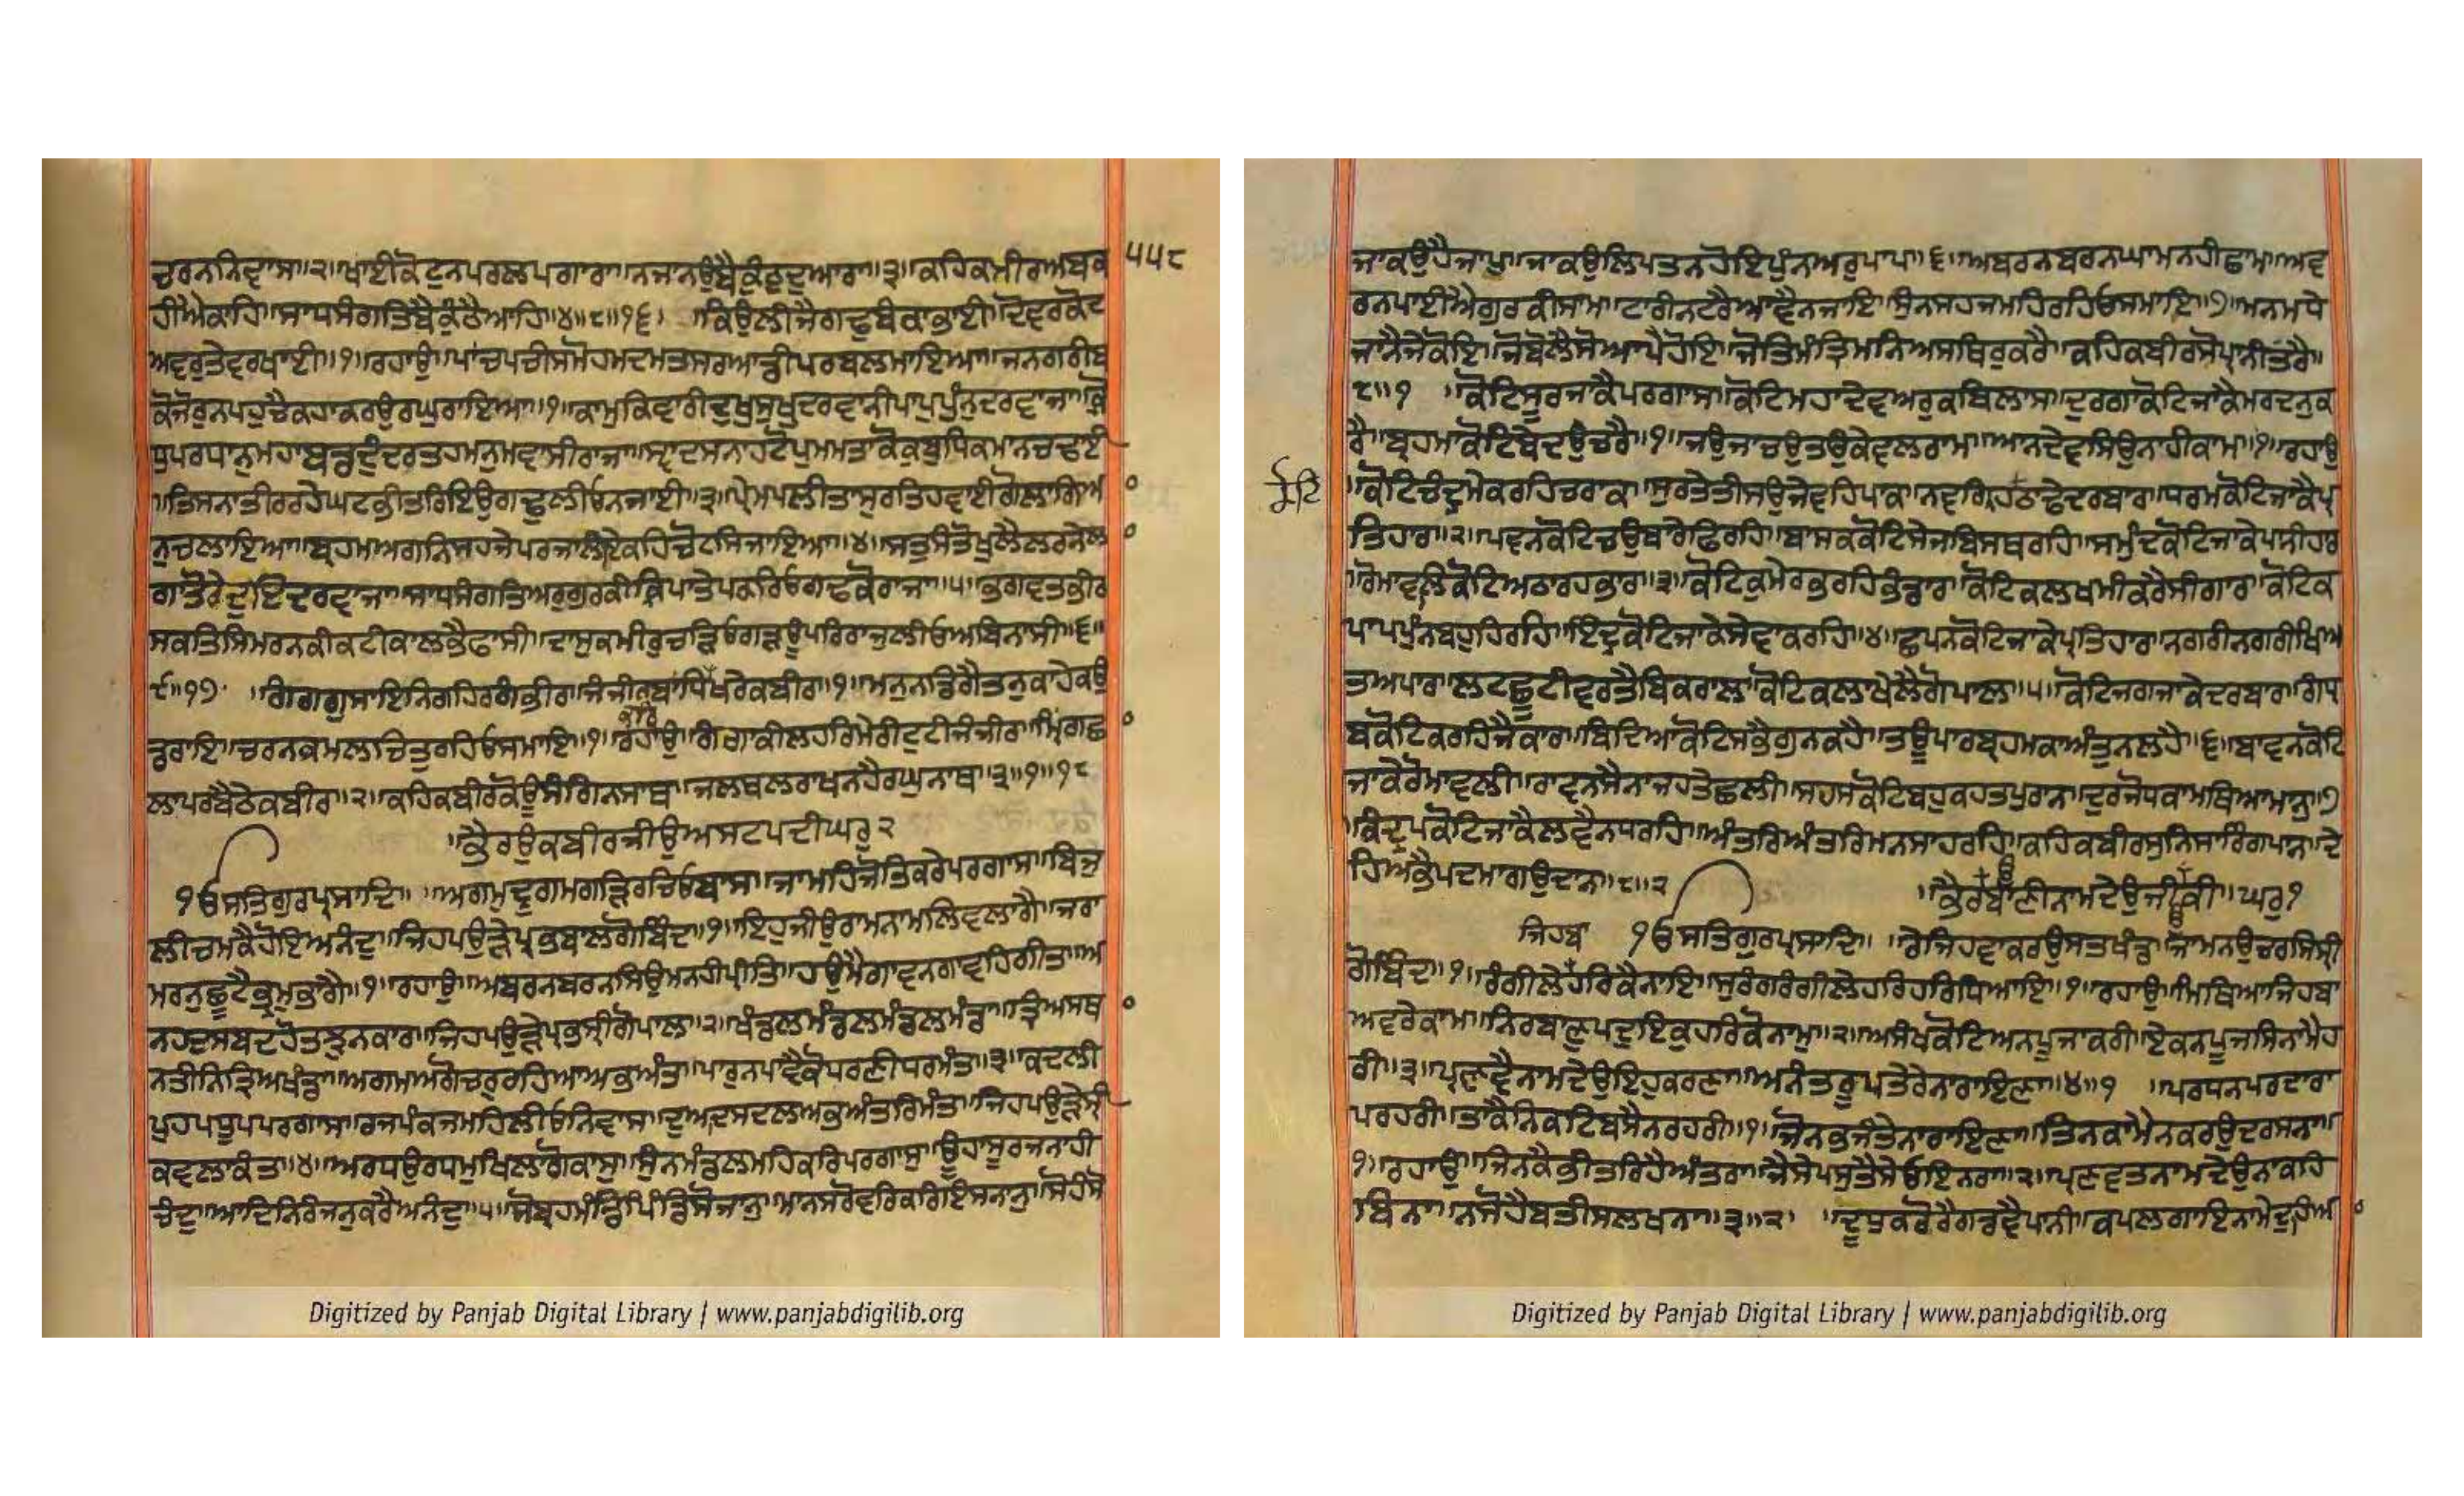 ਚਰਨਨਿਵਾਸਾ॥੨॥ਖਾਈਕੋਟੁਨਪਰਲਪਗਾਰਾ॥ਨਜਾਨਉਬੈਕੁੰਠਦੁਆਰਾ॥੩॥ਕਹਿਕਮੀਰਅਬਕ ੫੫੮
ਹੀਐਕਾਹਿ॥ਸਾਧਸੰਗਤਿਬੈਕੁੰਠੈਆਹਿ॥੪॥੮॥੧੬॥ ਕਿਉਲੀਜੈਗਢੁਬੰਕਾਭਾਈ॥ਦੋਵਰਕੋਟ
ਅਵਰੁਤੇਵਰਖਾਈ॥੧॥ਰਹਾਉ॥ਪਾਂਚਪਚੀਸਮੋਹਮਦਮਤਸਰਆਡੀਪਰਬਲਮਾਇਆ॥ਜਨਗਰੀਬ
ਕੋਜੋਰੁਨਪਹੁਚੈਕਹਾਕਰਉਰਘੁਰਾਇਆ॥੧॥ਕਾਮੁਕਿਵਾਰੀਦੁਖੁਸੁਖੁਦਰਵਾਨੀਪਾਪੁਪੁੰਨੁਦਰਵਾਜਾ॥ਕ੍ਰੋ
ਧੁਪਰਧਾਨੁਮਹਾਬਡਦੁੰਦਰਤਹਮਨੁਮਵਾਸੀਰਾਜਾ॥ਸ੍ਵਾਦਸਨਾਹਟੋਪੁਮਮਤਾਕੋਕੁਬੁਧਿਕਮਾਨਚਢਾਈ
॥ਤਿਸਨਾਤੀਰਰਹੇਘਟਭੀਤਰਿਇਉਗਢੁਲੀਓਨਜਾਈ॥੩॥ਪ੍ਰੇਮਪਲੀਤਾਸੁਰਤਿਹਵਾਈਗੋਲਾਗਿਆ
ਨੁਚਲਾਇਆ॥ਬ੍ਰਹਮਅਗਨਿਸਹਜੇਪਰਜਾਲੀਏਕਹਿਚੋਟਸਿਜਾਇਆ॥੪॥ਸਤੁਸੰਤੋਖੁਲੈਲਰਨੇਲਾ
ਗਾਤੋਰੇਦੁਇਦਰਵਾਜਾ॥ਸਾਧਸੰਗਤਿਅਰੁਗੁਰਕੀਕ੍ਰਿਪਾਤੇਪਕਰਿਓਗਢਕੋਰਾਜਾ॥੫॥ਭਗਵਤਭੀਰ
ਸਕਤਿਸਿਮਰਨਕੀਕਟੀਕਾਲਭੈਫਾਸੀ॥ਦਾਸੁਕਮੀਰੁਚੜ੍ਹਿਓਗੜ੍ਹਊਪਰਿਰਾਜੁਲੀਓਅਬਿਨਾਸੀ॥੬॥
੯॥੧੭॥ ਗੰਗਗੁਸਾਇਨਿਗਹਿਰਗੰਭੀਰ॥ਜੰਜੀਰਬਾਂਧਿਖਰੇਕਬੀਰ॥੧॥ਮਨੁਨਡਿਗੈਤਨੁਕਾਹੇਕਉ
ਡਰਾਇ॥ਚਰਨਕਮਲਚਿਤੁਰਹਿਓਸਮਾਇ॥੧॥ਰਹਾਉ॥ਗੰਗਾਕੀਲਹਰਿਮੇਰੀਟੁਟੀਜੰਜੀਰ॥ਮ੍ਰਿਗਛਾ
ਲਾਪਰਬੈਠੇਕਬੀਰ॥੨॥ਕਹਿਕਬੀਰਕੋਊਸੰਗਿਨਸਾਥ॥ਜਲਥਲਰਾਖਨਹੈਰਘੁਨਾਥ॥੩॥੧॥੧੮
॥ਭੈਰਉਕਬੀਰਜੀਉਅਸਟਪਦੀਘਰੁ੨
ੴਸਤਿਗੁਰਪ੍ਰਸਾਦਿ॥ ॥ਅਗਮੁਦ੍ਰੁਗਮਗੜਿਰਚਿਓਬਾਸ॥ਜਾਮਹਿਜੋਤਿਕਰੇਪਰਗਾਸ॥ਬਿਜੁ
ਲੀਚਮਕੈਹੋਇਅਨੰਦੁ॥ਜਿਹਪਉੜ੍ਹੇਪ੍ਰਭਬਾਲਗੋਬਿੰਦ॥੧॥ਇਹੁਜੀਉਰਾਮਨਾਮਲਿਵਲਾਗੈ॥ਜਰਾ
ਮਰਨੁਛੂਟੈਭ੍ਰਮੁਭਾਗੈ॥੧॥ਰਹਾਉ॥ਅਬਰਨਬਰਨਸਿਉਮਨਹੀਪ੍ਰੀਤਿ॥ਹਉਮੈਗਾਵਨਗਾਵਹਿਗੀਤ॥ਅ
ਨਹਦਸਬਦਹੋਤਝੁਨਕਾਰ॥ਜਿਹਪਉੜ੍ਹੇਪ੍ਰਭਸ੍ਰੀਗੋਪਾਲ॥੨॥ਖੰਡਲਮੰਡਲਮੰਡਲਮੰਡਾ॥ਤ੍ਰਿਅਸਥਾ
ਨਤੀਨਿਤ੍ਰਿਅਖੰਡਾ॥ਅਗਮਅਗੋਚਰੁਰਹਿਆਅਭਅੰਤ॥ਪਾਰੁਨਪਾਵੈਕੋਧਰਣੀਧਰਮੰਤ॥੩॥ਕਦਲੀ
ਪੁਹਪਧੂਪਪਰਗਾਸ॥ਰਜਪੰਕਜਮਹਿਲੀਓਨਿਵਾਸ॥ਦੁਆਦਸਦਲਅਭਅੰਤਰਿਮੰਤ॥ਜਿਹਪਉੜ੍ਹੇਸ੍ਰੀ
ਕਵਲਾਕੰਤ॥੪॥ਅਰਧਉਰਧਮੁਖਿਲਾਗੋਕਾਸੁ॥ਸੁੰਨਮੰਡਲਮਹਿਕਰਿਪਰਗਾਸੁ॥ਊਹਾਂਸੂਰਜਨਾਹੀ
ਚੰਦੁ॥ਆਦਿਨਿਰੰਜਨੁਕਰੈਅਨੰਦੁ॥੫॥ਸੋਬ੍ਰਹਮੰਡਿਪਿੰਡਿਸੋਜਾਨੁ॥ਮਾਨਸਰੋਵਰਿਕਰਿਇਸਨਾਨੁ॥ਸੋਹੰਸੋ
ਜਾਕਉਹੈਜਾਪੁ॥ਜਾਕਉਲਿਪਤਨਹੋਇਪੁੰਨਅਰੁਪਾਪ॥੬॥ਅਬਰਨਬਰਨਘਾਮਨਹੀਛਾਮ॥ਅਵ
ਰਨਪਾਈਐਗੁਰਕੀਸਾਮ॥ਟਾਰੀਨਟਰੈਆਵੈਨਜਾਇ॥ਸੁੰਨਸਹਜਮਹਿਰਹਿਓਸਮਾਇ॥੭॥ਮਨਮਧੇ
ਜਾਨੈਜੇਕੋਇ॥ਜੋਬੋਲੈਸੋਆਪੈਹੋਇ॥ਜੋਤਿਮੰਤ੍ਰਿਮਨਿਅਸਥਿਰੁਕਰੈ॥ਕਹਿਕਬੀਰਸੋਪ੍ਰਾਨੀਤਰੈ॥
੮॥੧ ॥ਕੋਟਿਸੂਰਜਾਕੈਪਰਗਾਸ॥ਕੋਟਿਮਹਾਦੇਵਅਰੁਕਬਿਲਾਸ॥ਦੁਰਗਾਕੋਟਿਜਾਕੈਮਰਦਨੁਕ
ਰੈ॥ਬ੍ਰਹਮਾਕੋਟਿਬੇਦਉਚਰੈ॥੧॥ਜਉਜਾਚਉਤਉਕੇਵਲਰਾਮ॥ਆਨਦੇਵਸਿਉਨਾਹੀਕਾਮ॥੧॥ਰਹਾਉ
॥ਕੋਟਿਚੰਦ੍ਰਮੇਕਰਹਿਚਰਾਕ॥ਸੁਰਤੇਤੀਸਉਜੇਵਹਿਪਾਕ॥ਨਵਗ੍ਰਿਹਠਾਢੇਦਰਬਾਰ॥ਧਰਮਕੋਟਿਜਾਕੈਪ੍ਰ
ਤਿਹਾਰ॥੨॥ਪਵਨਕੋਟਿਚਉਬਾਰੇਫਿਰਹਿ॥ਬਾਸਕਕੋਟਿਸੇਜਬਿਸਥਰਹਿ॥ਸਮੁੰਦਕੋਟਿਜਾਕੇਪਾਨੀਹਾਰ
॥ਰੋਮਾਵਲਿਕੋਟਿਅਠਾਰਹਭਾਰ॥੩॥ਕੋਟਿਕੁਮੇਰਭਰਹਿਭੰਡਾਰ॥ਕੋਟਿਕਲਖਮੀਕਰੈਸੀਗਾਰ॥ਕੋਟਿਕ
ਪਾਪਪੁੰਨਬਹੁਹਿਰਹਿ॥ਇੰਦ੍ਰਕੋਟਿਜਾਕੇਸੇਵਾਕਰਹਿ॥੪॥ਛਪਨਕੋਟਿਜਾਕੇਪ੍ਰਤਿਹਾਰ॥ਨਗਰੀਨਗਰੀਖਿਆ
ਤਅਪਾਰ॥ਲਟਛੂਟੀਵਰਤੈਬਿਕਰਾਲ॥ਕੋਟਿਕਲਾਖੇਲੈਗੋਪਾਲ॥੫॥ਕੋਟਿਜਗਜਾਕੇਦਰਬਾਰ॥ਗੰਧ੍ਰ
ਬਕੋਟਿਕਰਹਿਜੈਕਾਰ॥ਬਿਦਿਆਕੋਟਿਸਭੈਗੁਨਕਹੈ॥ਤਊਪਾਰਬ੍ਰਹਮਕਾਅੰਤੁਨਲਹੈ॥੬॥ਬਾਵਨਕੋਟਿ
ਜਾਕੈਰੋਮਾਵਲੀ॥ਰਾਵਨਸੈਨਾਜਹਤੇਛਲੀ॥ਸਹਸਕੋਟਿਬਹੁਕਹਤਪੁਰਾਨ॥ਦੁਰਜੋਧਕਾਮਥਿਆਮਾਨੁ॥੭
॥ਕੰਦ੍ਰਪਕੋਟਿਜਾਕੈਲਵੈਨਧਰਹਿ॥ਅੰਤਰਿਅੰਤਰਿਮਨਸਾਹਰਹਿ॥ਕਹਿਕਬੀਰਸੁਨਿਸਾਰਿਗਪਾਨ॥ਦੇ
ਹਿਅਭੈਪਦਮਾਗਉਦਾਨ॥੮॥੨ ॥ਭੈਰਬਾਣੀਨਾਮਦੇਉਜੀਕੀ॥ਘਰੁ੧
ਜਿਹਬਾ ੴਸਤਿਗੁਰਪ੍ਰਸਾਦਿ॥ ॥ਰੇਜਿਹਵਾਕਰਉਸਤਖੰਡ॥ਜਾਮਨਉਚਰਸਿਸ੍ਰੀ
ਗੋਬਿੰਦ॥੧॥ਰੰਗੀਲੇਹਰਿਕੈਨਾਇ॥ਸੁਰੰਗਰੰਗੀਲੇਹਰਿਹਰਿਧਿਆਇ॥੧॥ਰਹਾਉ॥ਮਿਥਿਆਜਿਹਬਾ
ਅਵਰੇਕਾਮ॥ਨਿਰਬਾਣਪਦੁਇਕੁਹਰਿਕੋਨਾਮੁ॥੨॥ਅਸੰਖਕੋਟਿਅਨਪੂਜਾਕਰੀ॥ਏਕਨਪੂਜਸਿਨਾਮੈਹ
ਰੀ॥੩॥ਪ੍ਰਣਵੈਨਾਮਦੇਉਇਹੁਕਰਣਾ॥ਅਨੰਤਰੂਪਤੇਰੇਨਾਰਾਇਣਾ॥੪॥੧ ॥ਪਰਧਨਪਰਦਾਰਾ
ਪਰਹਰੀ॥ਤਾਕੈਨਿਕਟਿਬਸੈਨਰਹਰੀ॥੧॥ਜੋਨਭਜੰਤੇਨਾਰਾਇਣਾ॥ਤਿਨਕਾਮੈਨਕਰਉਦਰਸਨਾ॥
੧॥ਰਹਾਉ॥ਜਿਨਕੈਭੀਤਰਿਹੈਅੰਤਰਾ॥ਜੈਸੇਪਸੁਤੈਸੇਓਇਨਰਾ॥੨॥ਪ੍ਰਣਵਤਨਾਮਦੇਉਨਾਕਹਿ
ਬਿਨਾ॥ਨਸੋਹੈਬਤੀਸਲਖਨਾ॥੩॥੨॥ ॥ਦੂਧੁਕਟੋਰੈਗਡਵੈਪਾਨੀ॥ਕਪਲਗਾਇਨਾਮੇਦੁਹਿਆ
Digitized by Panjab Digital Library | www.panjabdigilib.org
Digitized by Panjab Digital Library | www.panjabdigilib.org